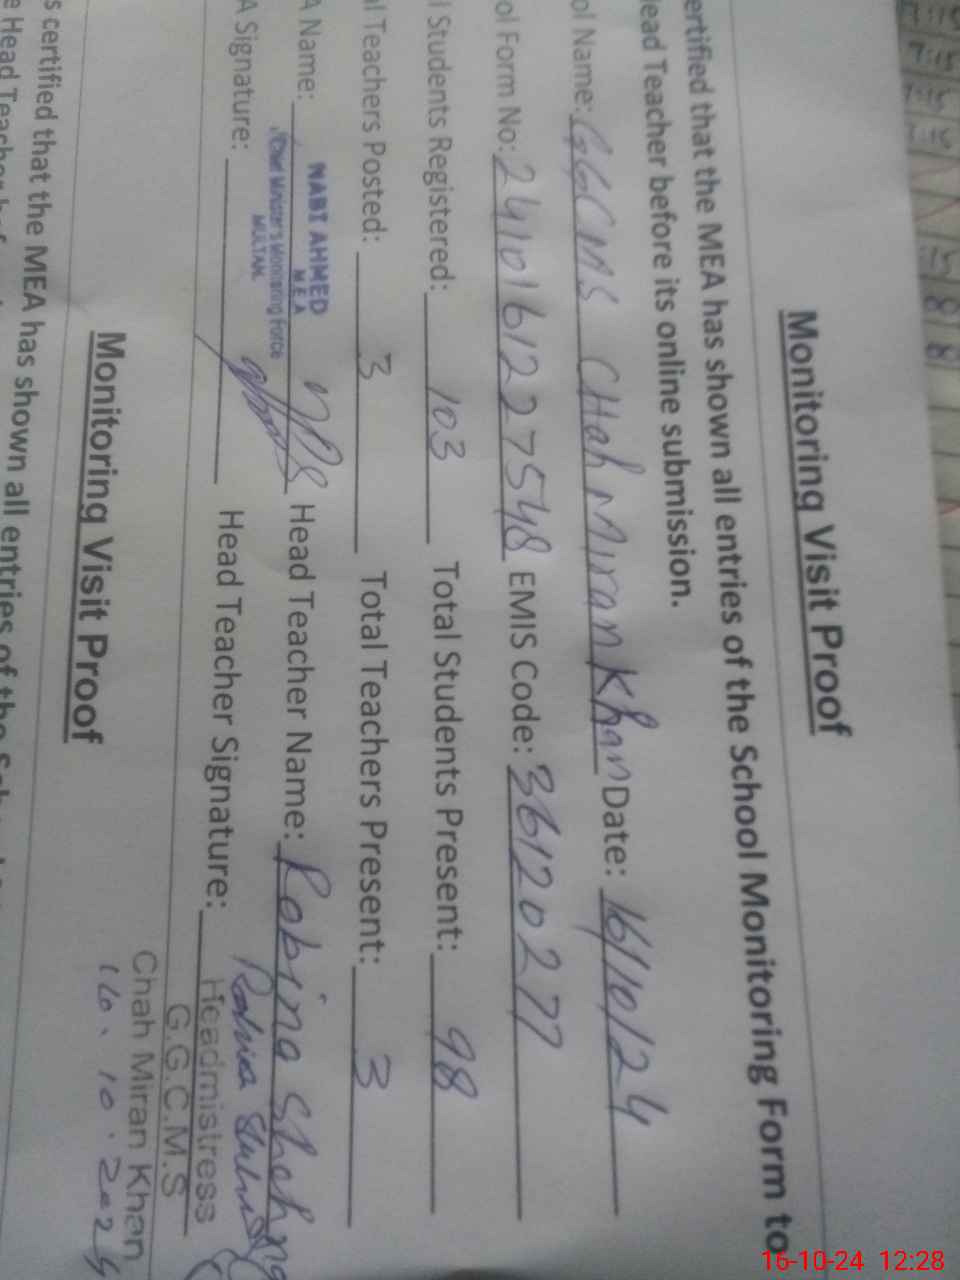 Monitoring Visit Proof
ertified that the MEA has shown all entries of the School Monitoring Form to
lead Teacher before its online submission.
ol Name: GGCMS CHah Miran Khan Date: 16/10/24
ol Form No: 2410161227548 EMIS Code: 36120277
l Students Registered: 103 Total Students Present: 98
al Teachers Posted: 3 Total Teachers Present: 3
A Name: Head Teacher Name: Robina
NABI AHMED
M E A
Chief Minister's Monitoring Force
MULTAN
A Signature: Head Teacher Signature:
Headmistress
G.G.C.M.S
Chah Miran Khan
16.10.2024
Monitoring Visit Proof
s certified that the MEA has shown all entries of the
e Head Teacher
16-10-24 12:28